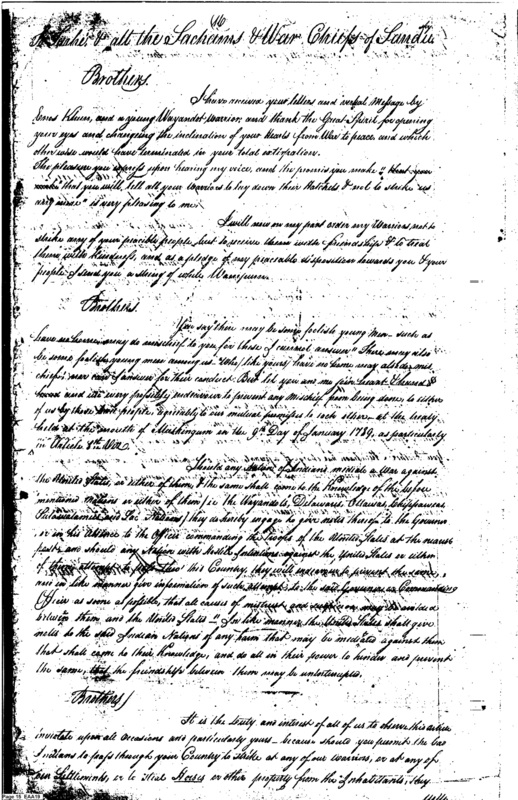 16
& all the Sachams & War Chiefs of Sandu
Brothers.
I have received your letters and verbal Message by
and a young Wayandot warrior, and thank the Great Spirit for opening
your eyes and changeing the inclination of your Hearts from War to peace, and which
otherwise would have terminated in your total extirpation.
The pleasure you express upon hearing my voice, and the promise you make "
that you will, tell all your warriors to lay down their Hatchets & not to strike us
any more" is very pleasing to me.
I will now on my part order my Warriors, not to
strike any of your peacible people, but to receive them with friendship & to treat
them with kindness, and as a pledge of my peaceable disposition towards you & your
people I send you a string of white Wampum.
Brothers.
You say "there may be some foolish young Men such as
have no homes may do mischief to you, for those I cannot answer" There may also
be some foolish young men among us. Who, like yours, have no home may also do mis
chief; nor can I answer for their conduct. But let you and me join Heart & hand
and use every possible endeavour to prevent any Mischief from being done, to either
of us by those people, agreeable to our mutual promises to each other at the treaty
held at the mouth of Muskingum on the 9th Day of January 1789, as particularly
in Article
Should any Nation of Indians mediate a War against
the United States, or either of them, & the same shall come to the Knowledge of the before
mentioned Nations or either of them (ie the Wayandots, Delawares, Ottawas, Chippawas,
Putawatamies and Sac Nations) they do hereby engage to give notice thereof to the Governor
or in his absence to the Officer commanding the Troops of the United States at the nearest
post, and should any Nation with Hostile Intentions against the United States or either
of them attempt to pass thro' this Country, they will endeavor to prevent the same,
and in like manner give information of such attempt to the said Governor or Commanding
Officer as soon as possible, that all causes of mistrust and suspicion may be avoided
between them and the United States." In like manner the United States shall give
notice to the said Indian Nations of any harm that may be mediated against them
that shall come to their Knowledge; and do all in their power to hinder and prevent
the same, that the friendship between them may be uninterrupted.
Brothers/
It is the duty and interest of all of us to observe this article
inviolate upon all occasions and particularly yours because should you permit the bad
Indians to pass through your Country to strike at any of our warriors, or at any of
our Settlements, or to steal Horses or other property from the Inhabitants; they
Page 15 EAA19